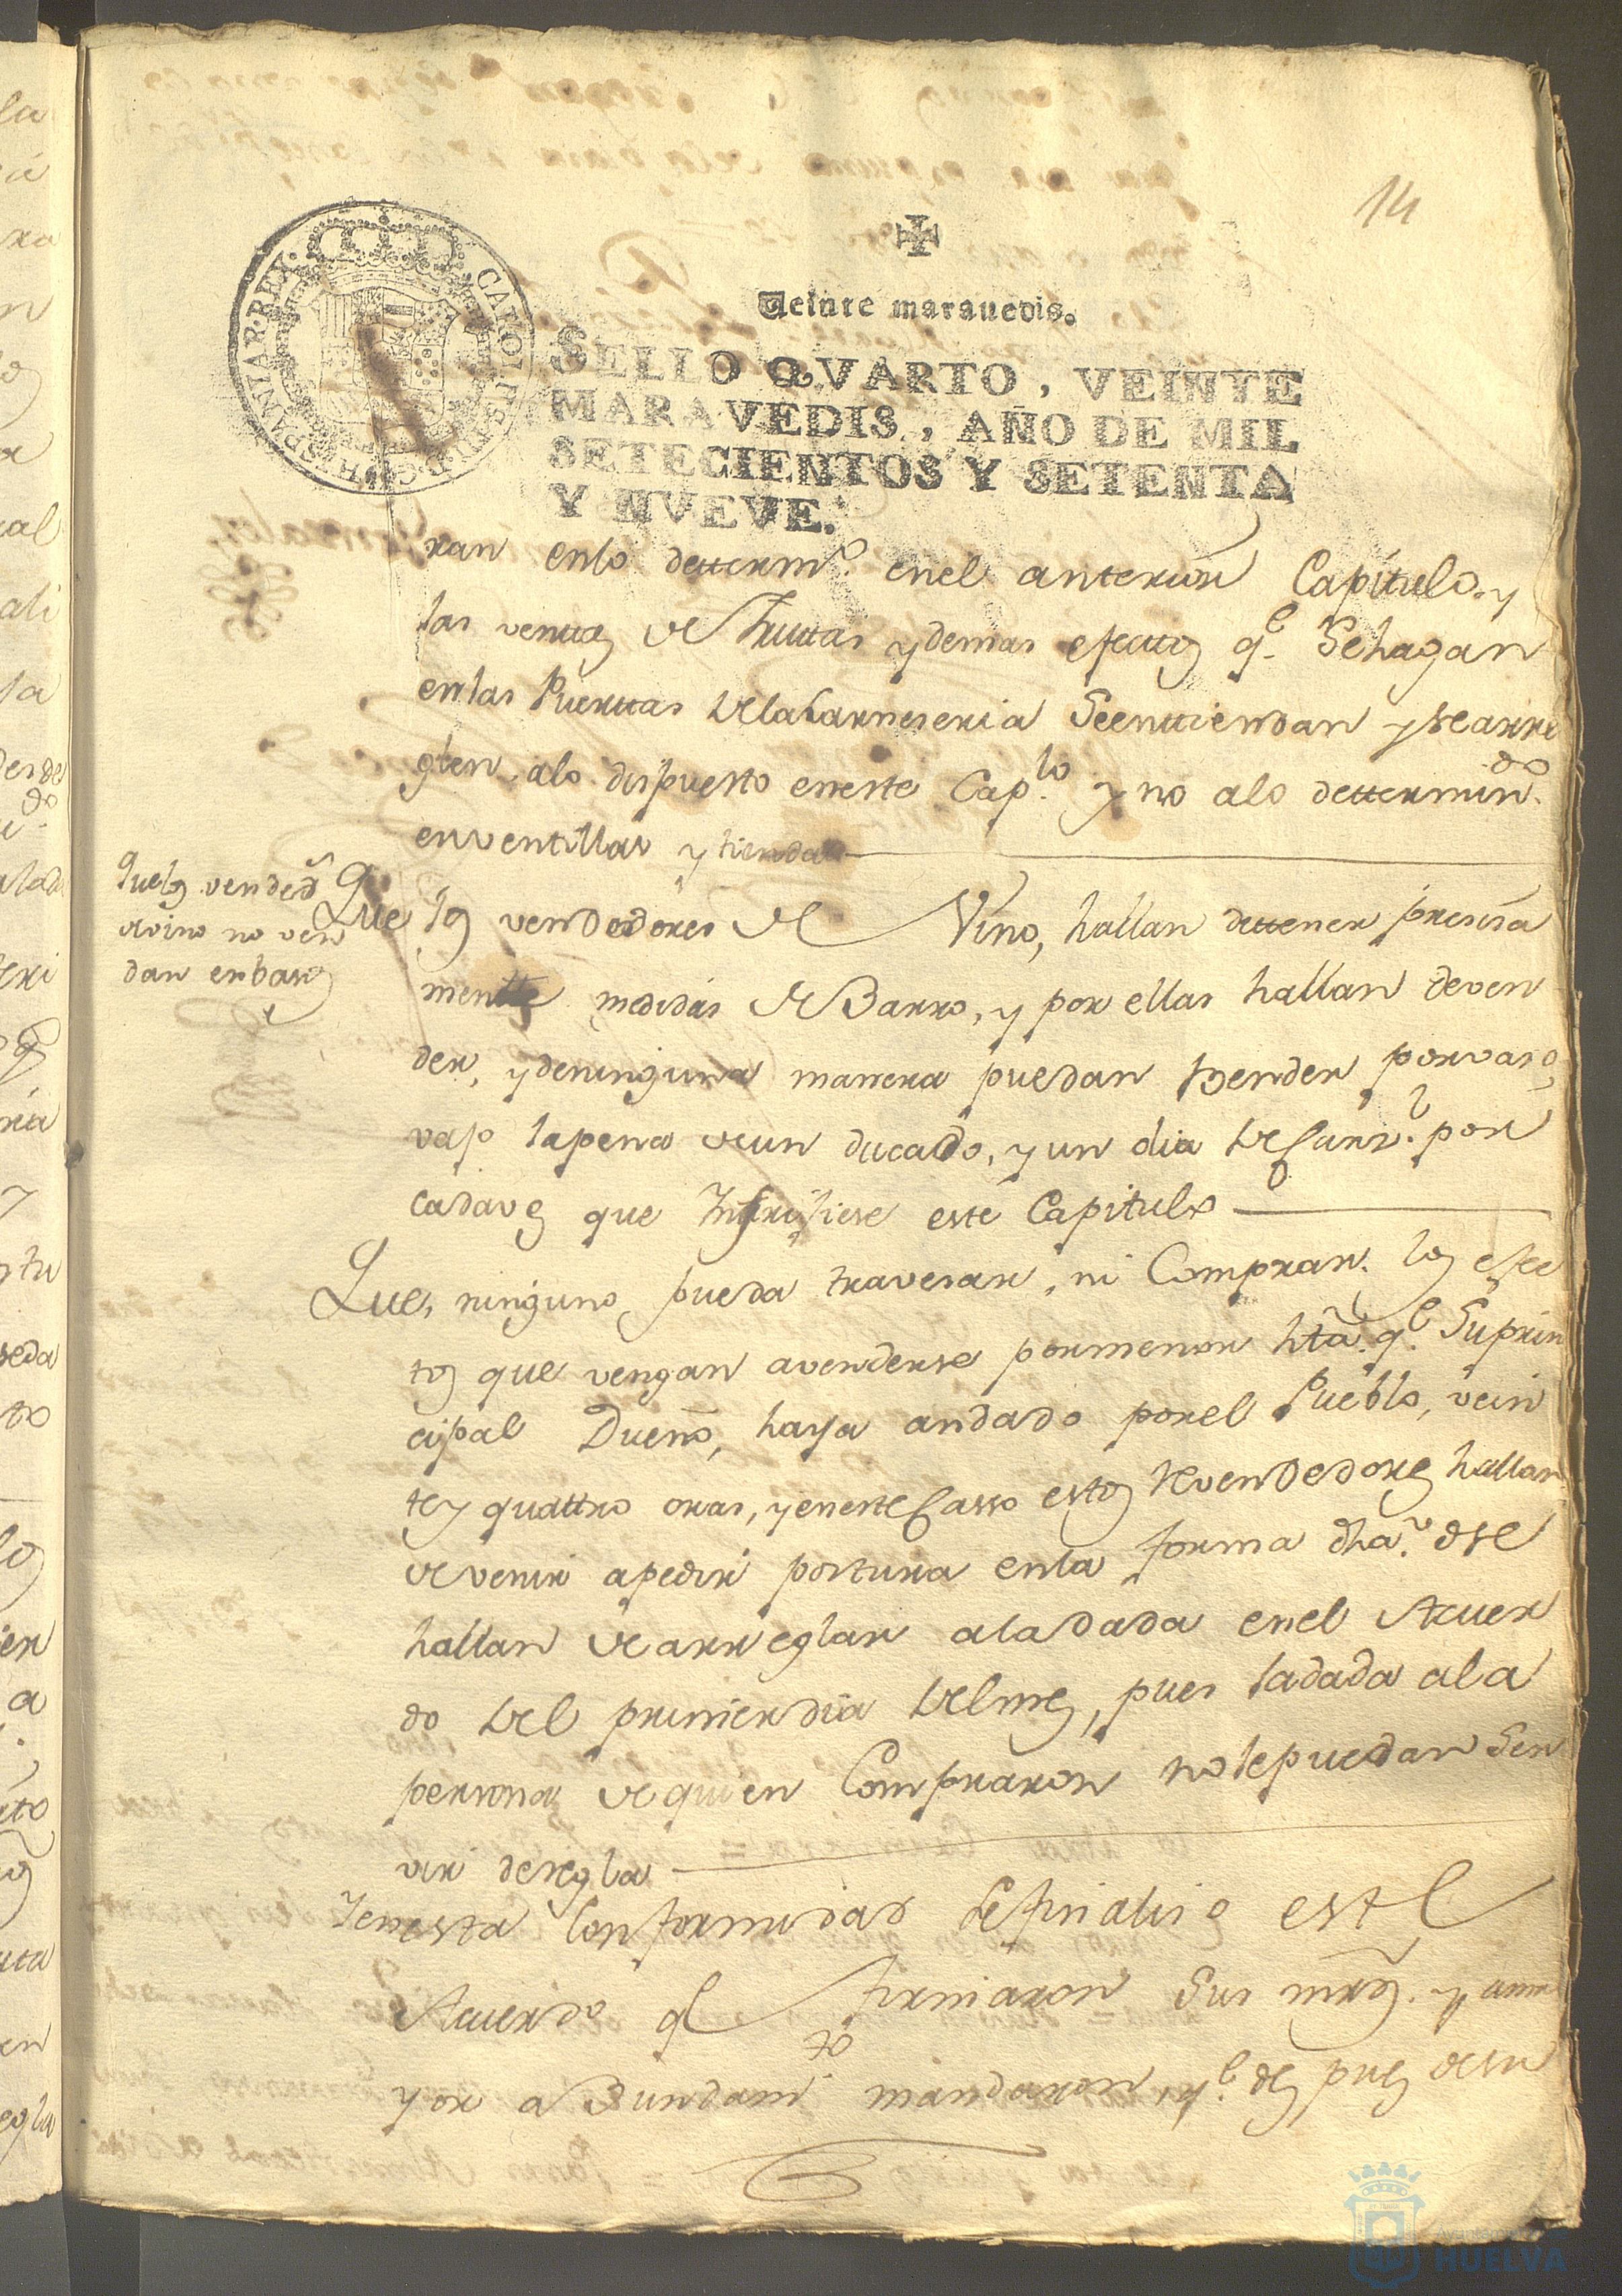 14
Veinte marauedis.
SELLO QVARTO, VEINTE
MARAVEDIS, AÑO DE MIL
SETECIENTOS Y SETENTA
Y NVEVE.
CAROLUS III D.G. HISPANIAR. REX.
ran enlo dettermo. enel anterior Capitulo. y
las ventas de fruttas y demas efectos qe. Sehagan
enlas Puertas delaCarneseria Seenttiendan y searre
glen alo dispuesto eneste Caplo. y no alo determindo.
enventillas y tiendas
Quelos vendeds
devino no ven
dan enbasos
Que los vendedores de Vino, hallan dettener presisa
mentte medidas de Barro, y por ellas hallan deven
der, y deninguna manera puedan vender por vasos,
vajo lapena deun ducado, y un dia deCarzl. por
cadaves que Infrijiese este Capitulo
Que, ninguno pueda travesar, ni Comprar. los efec
tos que vengan avenderse pormenor hta. qe. Suprin
cipal Dueño, haya andado porel Pueblo, vein
te y quattro oras, y enesteCasso estos Revendedores hallan
de venir apedir postura enla forma dha. ose
hallan dearreglar aladada enel Acuer
do del primerdia delmes, pues ladada ala
persona dequien Compraron nolepuedan Ser
vir deregla
Yenesta Conformidad sefinaliso este
Acuerdo qe firmaron Sus mrds. y
yor aBundamto. mandaron, qe. despues desu
Ayuntamiento
HUELVA